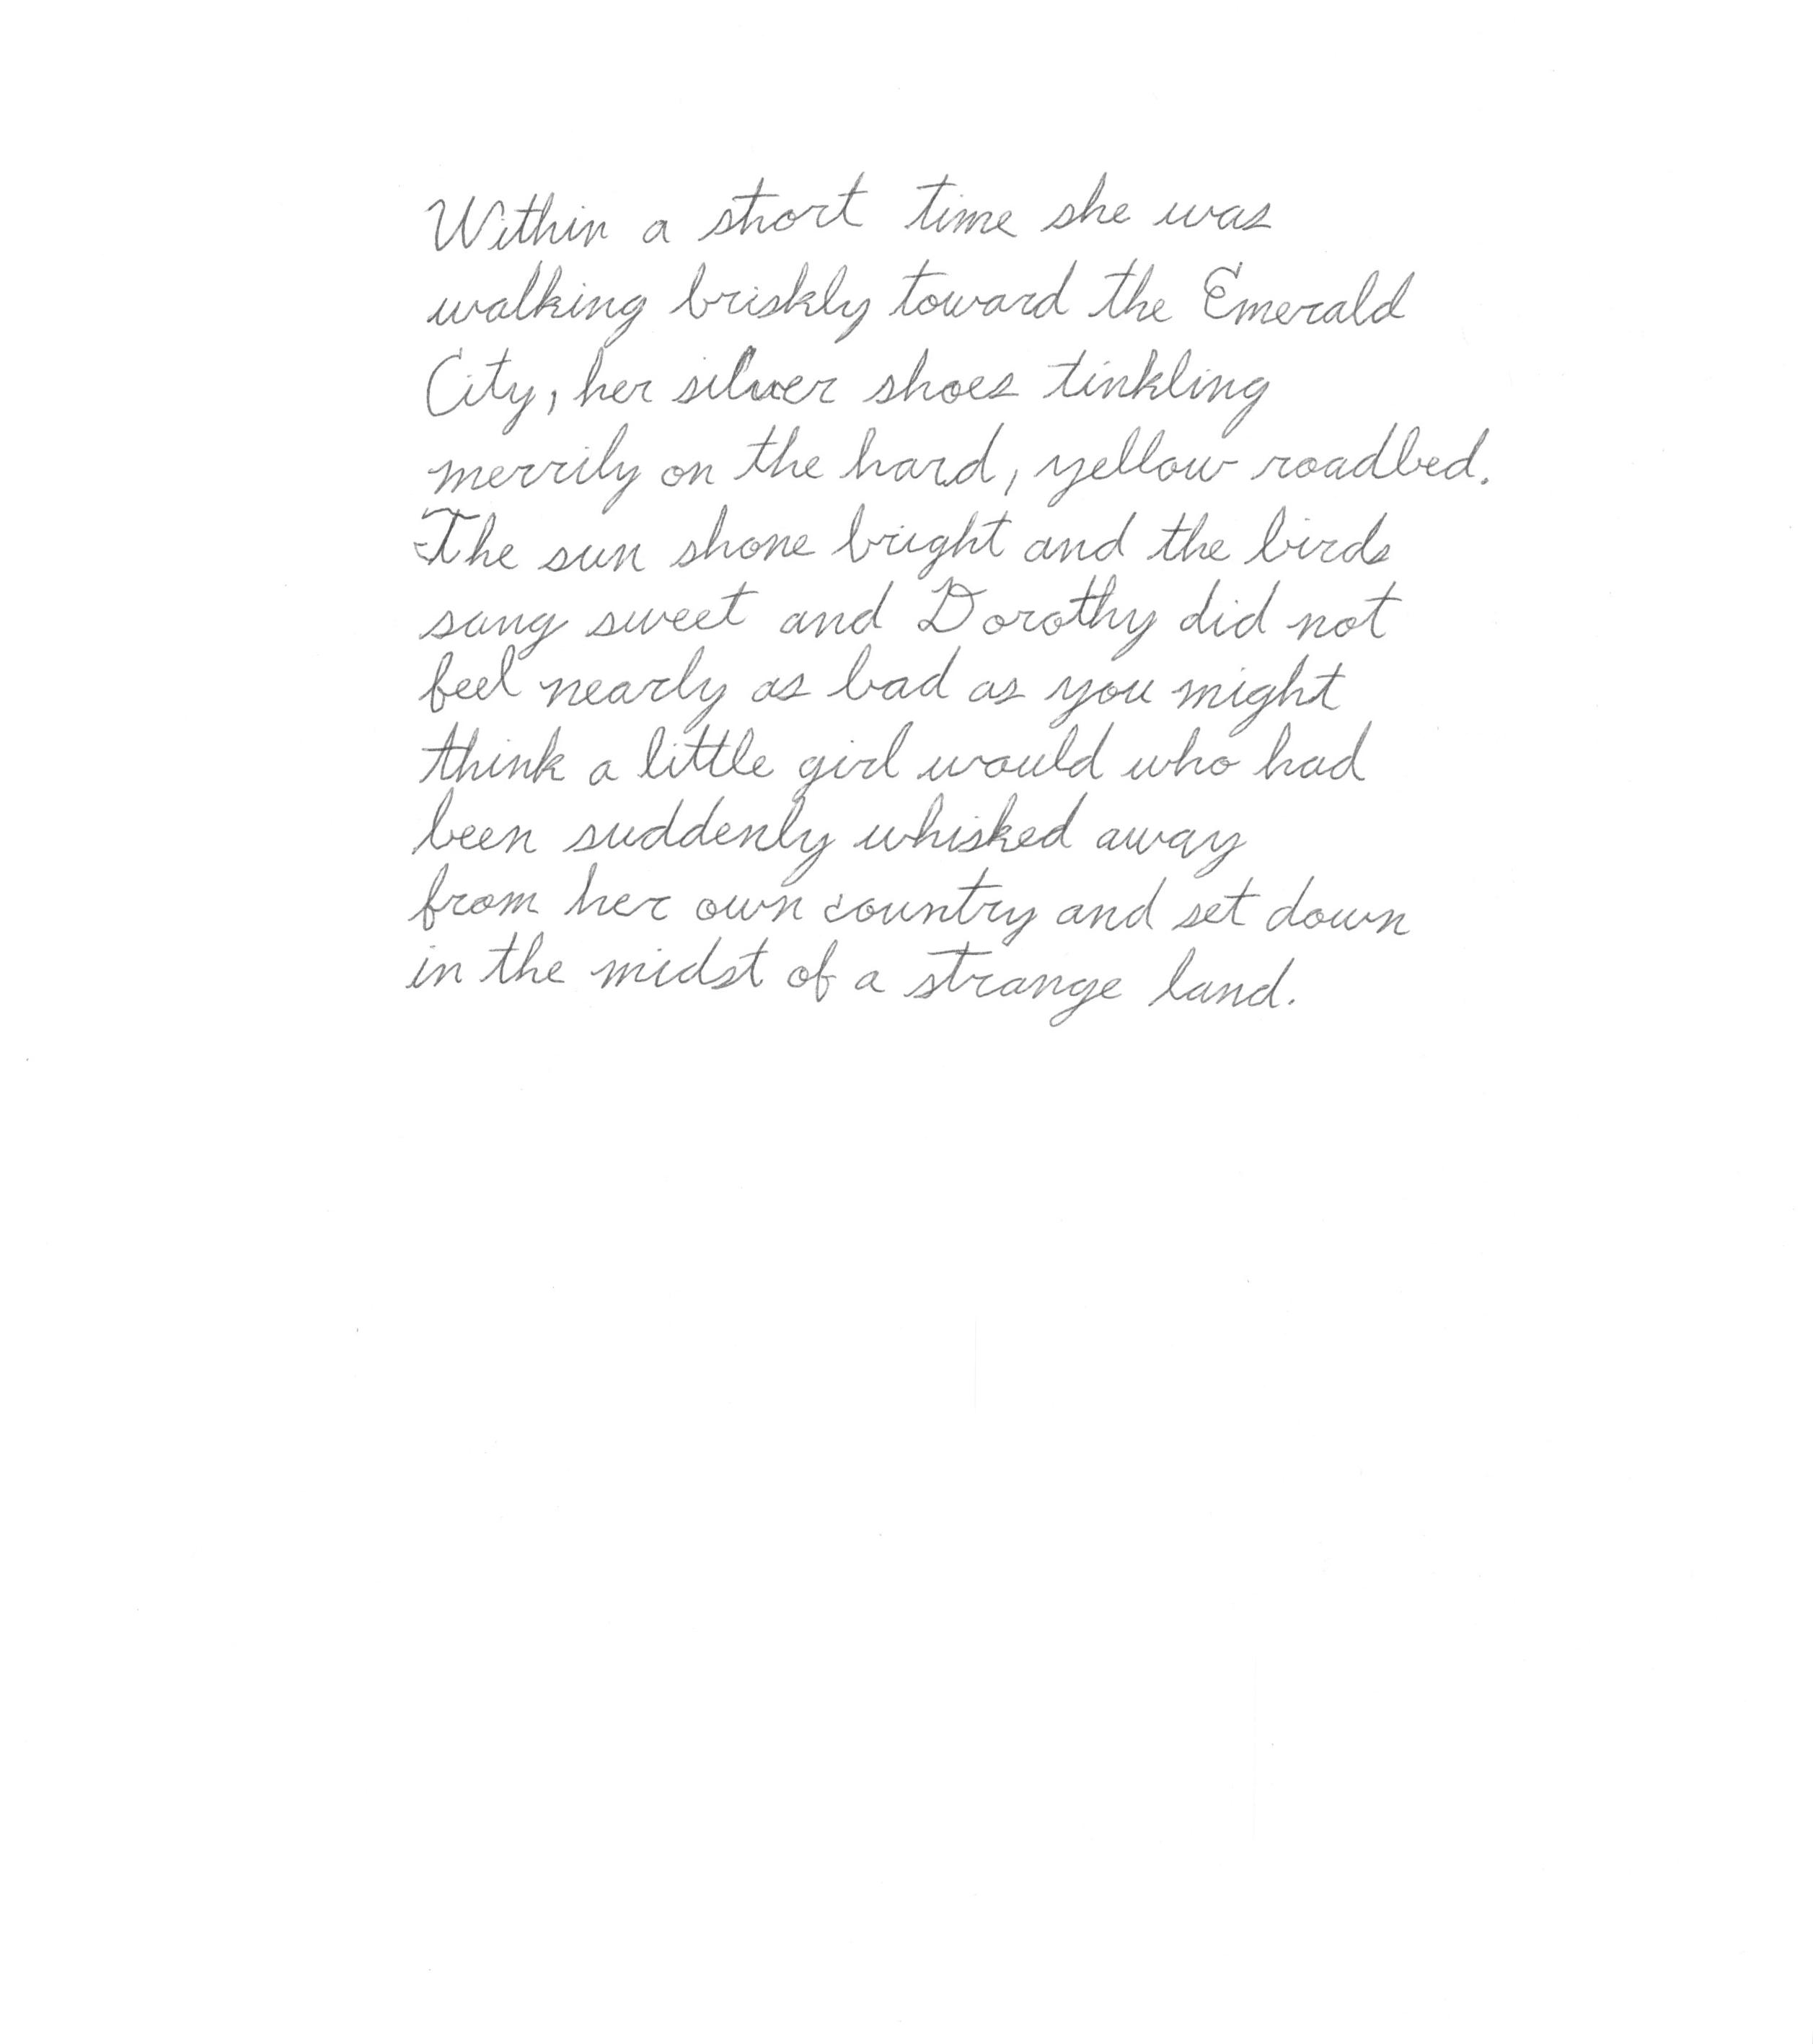 Within a short time she was
walking briskly toward the Emerald
City, her silver shoes tinkling
merrily on the hard, yellow roadbed.
The sun shone bright and the birds
sang sweet and Dorothy did not
feel nearly as bad as you might
think a little girl would who had
been suddenly whisked away
from her own country and set down
in the midst of a strange land.